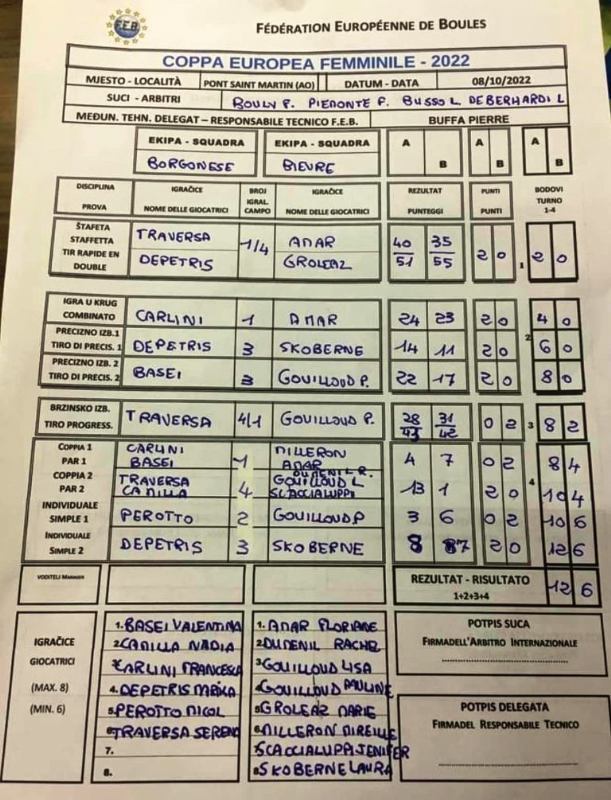 F.E.B.
FÉDÉRATION EUROPÉENNE DE BOULES
COPPA EUROPEA FEMMINILE - 2022
MJESTO - LOCALITÀ PONT SAINT MARTIN (AO) DATUM - DATA 08/10/2022
SUCI - ARBITRI BOULY P. PIEMONTE F. BUSSO L. DEBERHARDI L
MEĐUN. TEHN. DELEGAT – RESPONSABILE TECNICO F.E.B. BUFFA PIERRE
EKIPA - SQUADRA EKIPA - SQUADRA A B A B A B
BORGONESE BIEVRE
DISCIPLINA IGRAČICE BROJ IGRAČICE REZULTAT PUNTI BODOVI
IGRAL. TURNO
PROVA NOME DELLE GIOCATRICI CAMPO NOME DELLE GIOCATRICI PUNTEGGI PUNTI 1-4
ŠTAFETA
STAFFETTA TRAVERSA 1/4 AMAR 40 35
TIR RAPIDE EN DEPETRIS GROLEAZ 51 55 2 0 1 2 0
DOUBLE
IGRA U KRUG
COMBINATO CARLINI 1 AMAR 24 23 2 0 4 0
PRECIZNO IZB.1
TIRO DI PRECIS. 1 DEPETRIS 3 SKOBERNE 14 11 2 0 2 6 0
PRECIZNO IZB. 2
TIRO DI PRECIS. 2 BASEI 3 GOUILLOUD P. 22 17 2 0 8 0
BRZINSKO IZB. 28 31
TIRO PROGRESS. TRAVERSA 4/1 GOUILLOUD P. 43 42 0 2 3 8 2
COPPIA 1 CARLINI MILLERON
PAR 1 BASEI 1 AMAR 4 7 0 2 8 4
COPPIA 2 TRAVERSA DUMENIL R. GOUILLOUD L
PAR 2 CANILLA 4 SCACCIALUPPI 13 1 2 0 4 10 4
INDIVIDUALE
SIMPLE 1 PEROTTO 2 GOUILLOUD P 3 6 0 2 10 6
INDIVIDUALE
SIMPLE 2 DEPETRIS 3 SKOBERNE 8 7 2 0 12 6
VODITELI MANAGER REZULTAT - RISULTATO 12 6
1+2+3+4
IGRAČICE
GIOCATRICI
(MAX. 8)
(MIN. 6)
1. BASEI VALENTINA
2 CANILLA NADIA
3 CARLINI FRANCESCA
4. DEPETRIS MARIKA
5. PEROTTO NICOL
6 TRAVERSA SERENA
7.
8.
1. AMAR FLORIANE
2 DUMENIL RACHEL
3 GOUILLOUD LISA
4 GOUILLOUD PAULINE
5 GROLEAZ MARIE
6 MILLERON MIREILLE
7 SCACCIALUPPI JENIFER
8 SKOBERNE LAURA
POTPIS SUCA
FIRMA DELL'ARBITRO INTERNAZIONALE
POTPIS DELEGATA
FIRMA DEL RESPONSABILE TECNICO